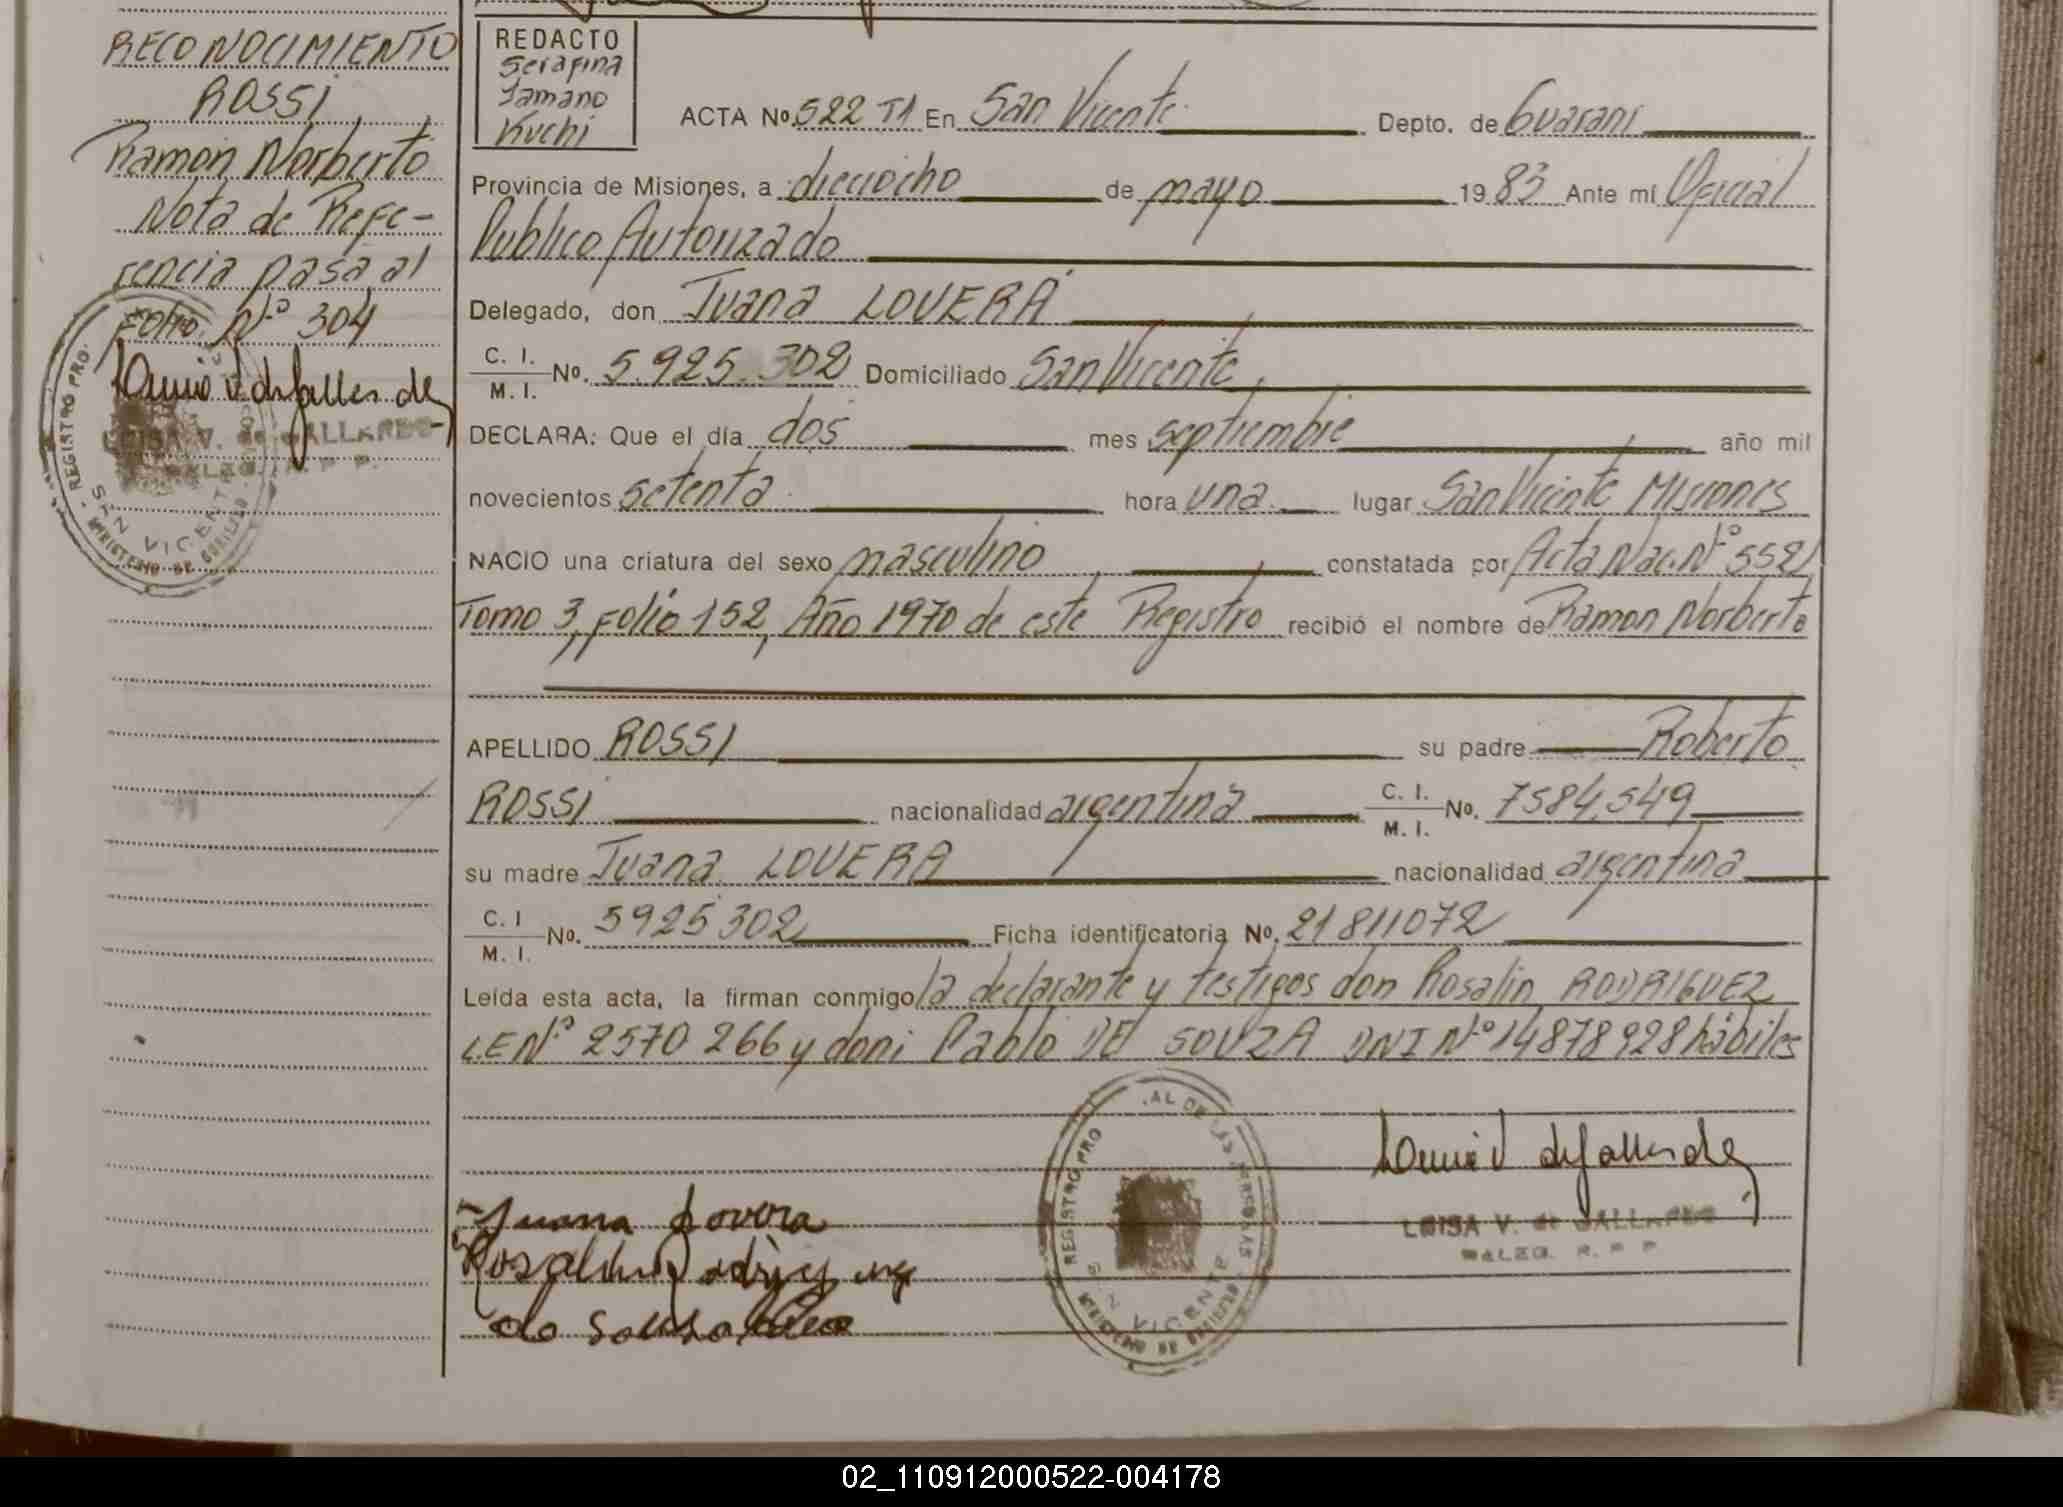 RECONOCIMIENTO
ROSSI
Ramon Norberto
Nota de Refe-
rencia pasa al
Folio Nº 304
LUISA V. de GALLARDO
DELEG. R. P. P.
REGISTRO PRO.
SAN VICENTE
REDACTO
Serafina
Tamano
Kuchi
ACTA Nº. 522 T1 En San Vicente Depto. de Guarani
Provincia de Misiones, a dieciocho de mayo 1983 Ante mí Oficial
Publico Autorizado
Delegado, don Juana LOVERA
C. I. / M. I. No. 5.925.302 Domiciliado San Vicente
DECLARA: Que el día dos mes septiembre año mil
novecientos setenta hora una lugar San Vicente Misiones
NACIO una criatura del sexo masculino constatada por Acta Nac. Nº 552
Tomo 3, Folio 152, Año 1970 de este Registro recibió el nombre de Ramon Norberto
APELLIDO ROSSI su padre Roberto
ROSSI nacionalidad argentina C. I. / M. I. No. 7584.549
su madre Juana LOVERA nacionalidad argentina
C. I / M. I. No. 5925302 Ficha identificatoria No. 21811072
Leída esta acta, la firman conmigo la declarante y testigos don Rosalin RODRIGUEZ
L.E Nº 2570 266 y don Pablo DE SOUZA DNI Nº 14878928 hábiles
Juana Lovera
REGISTRO PRO AL DE LAS PERSONAS
SAN VICENTE
LUISA V. de GALLARDO
DELEG. R. P P
02_110912000522-004178